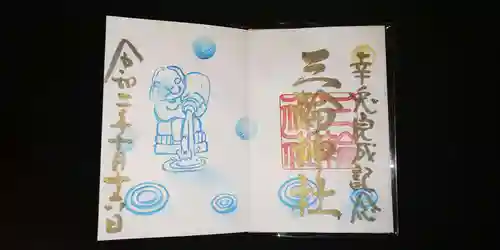 幸兎完成記念
三輪神社
令和二年十一月十六日